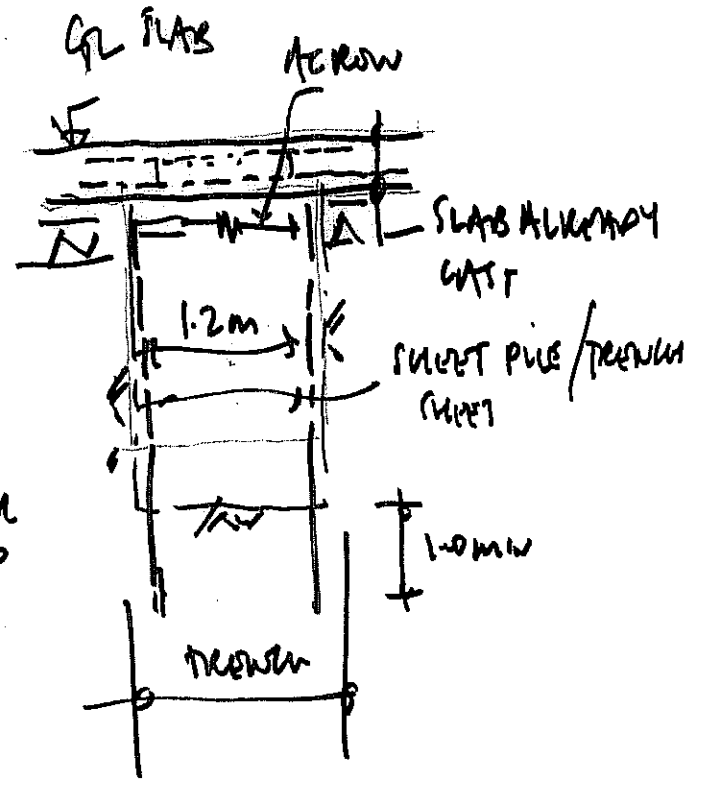 GL SLAB
ACROW
SLAB ALREADY
CAST
1.2m
SHEET PILE/TRENCH
SHEET
1.0 min
TRENCH